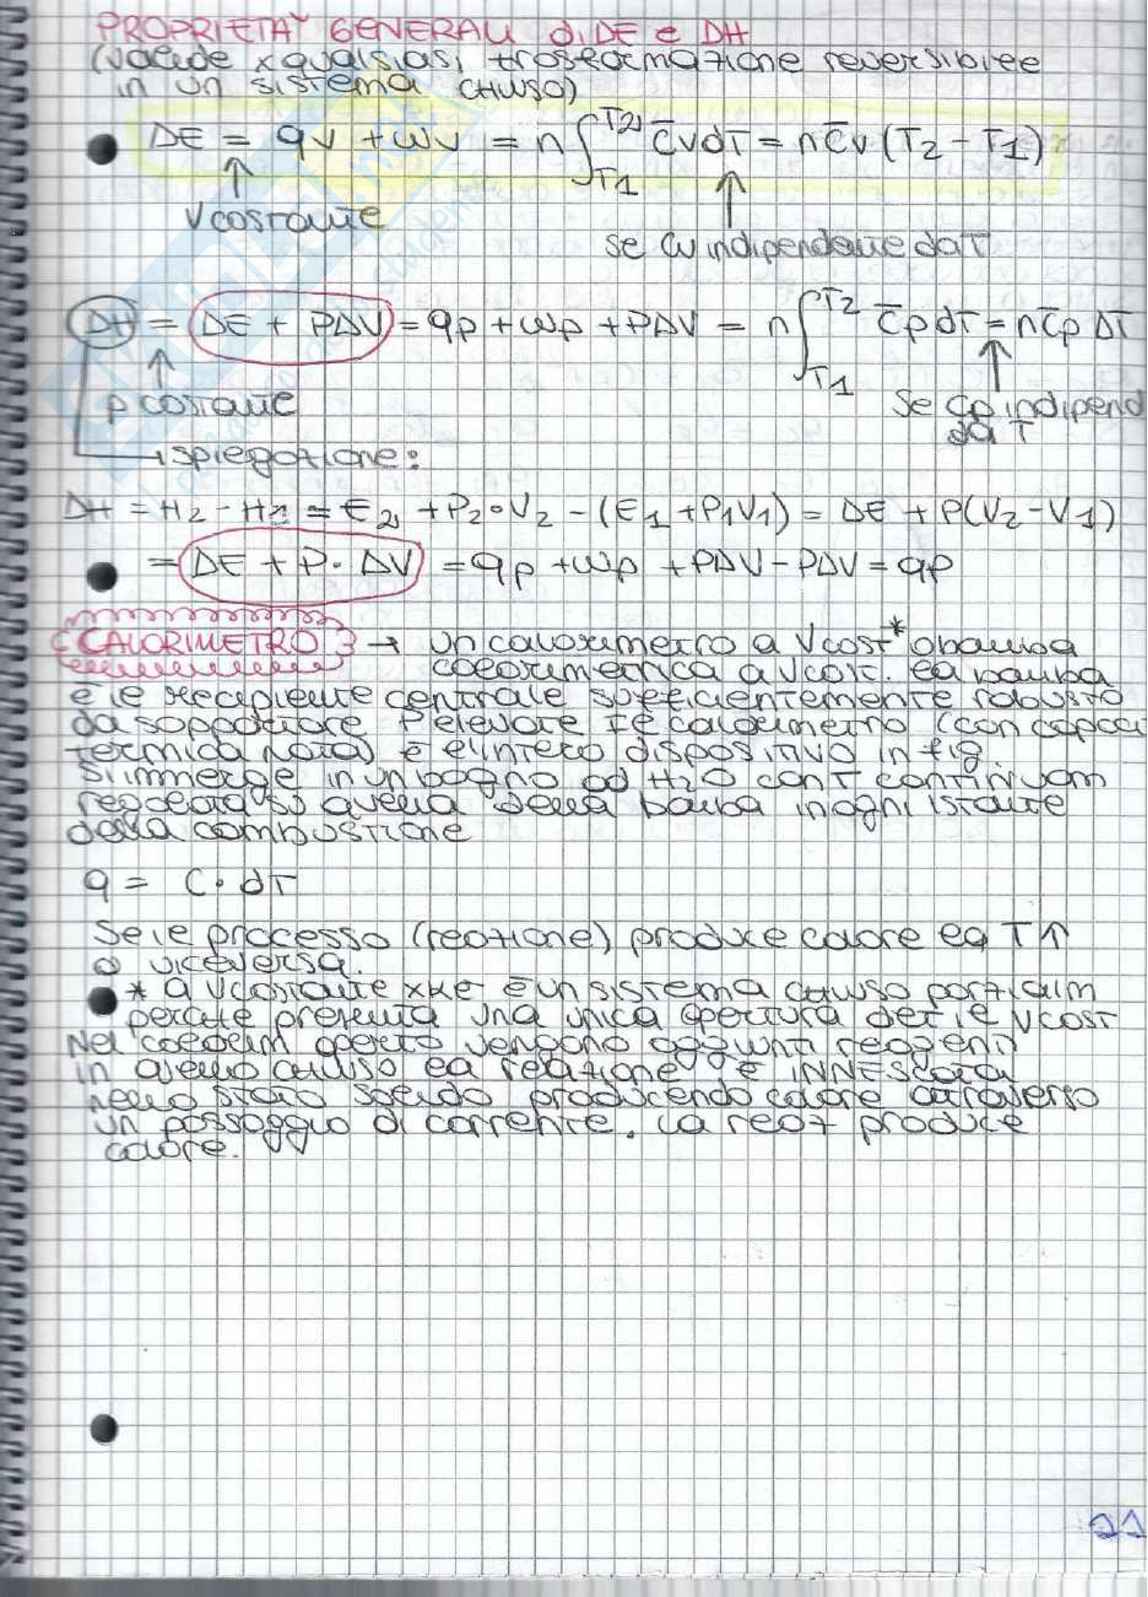 PROPRIETA' GENERALI di DE e DH
(valide x qualsiasi trasformazione reversibile
in un sistema CHIUSO)
DE = qv + wv = n ∫T1T2 C̄v dT = n C̄v (T2 - T1)
V costante
se Cv indipendente da T
DH = DE + PΔV = qp + wp + PΔV = n ∫T1T2 C̄p dT = n C̄p ΔT
p costante
se Cp indipend
da T
→ spiegazione:
DH = H2 - H1 = E2 + P2·V2 - (E1 + P1V1) = DE + P(V2 - V1)
= DE + P·ΔV = qp + wp + PΔV - PΔV = qp
CALORIMETRO → un calorimetro a Vcost* o bomba
calorimetrica a Vcost. la bomba
è il recipiente centrale sufficientemente robusto
da sopportare P elevate il calorimetro (con capaci
termica nota) è l'intero dispositivo in fig.
si immerge in un bagno ad H2O con T continuam
regolata su quella della bomba in ogni istante
della combustione
q = C · dT
Se il processo (reazione) produce calore la T↑
o viceversa.
* a Vcostante xke è un sistema chiuso
perche presenta una unica apertura del Vcost
Nel calorim aperto vengono aggiunti reagenti
in quello chiuso la reazione è INNESCATA
nello stato solido producendo calore attraverso
un passaggio di corrente. La reaz produce
calore.
21